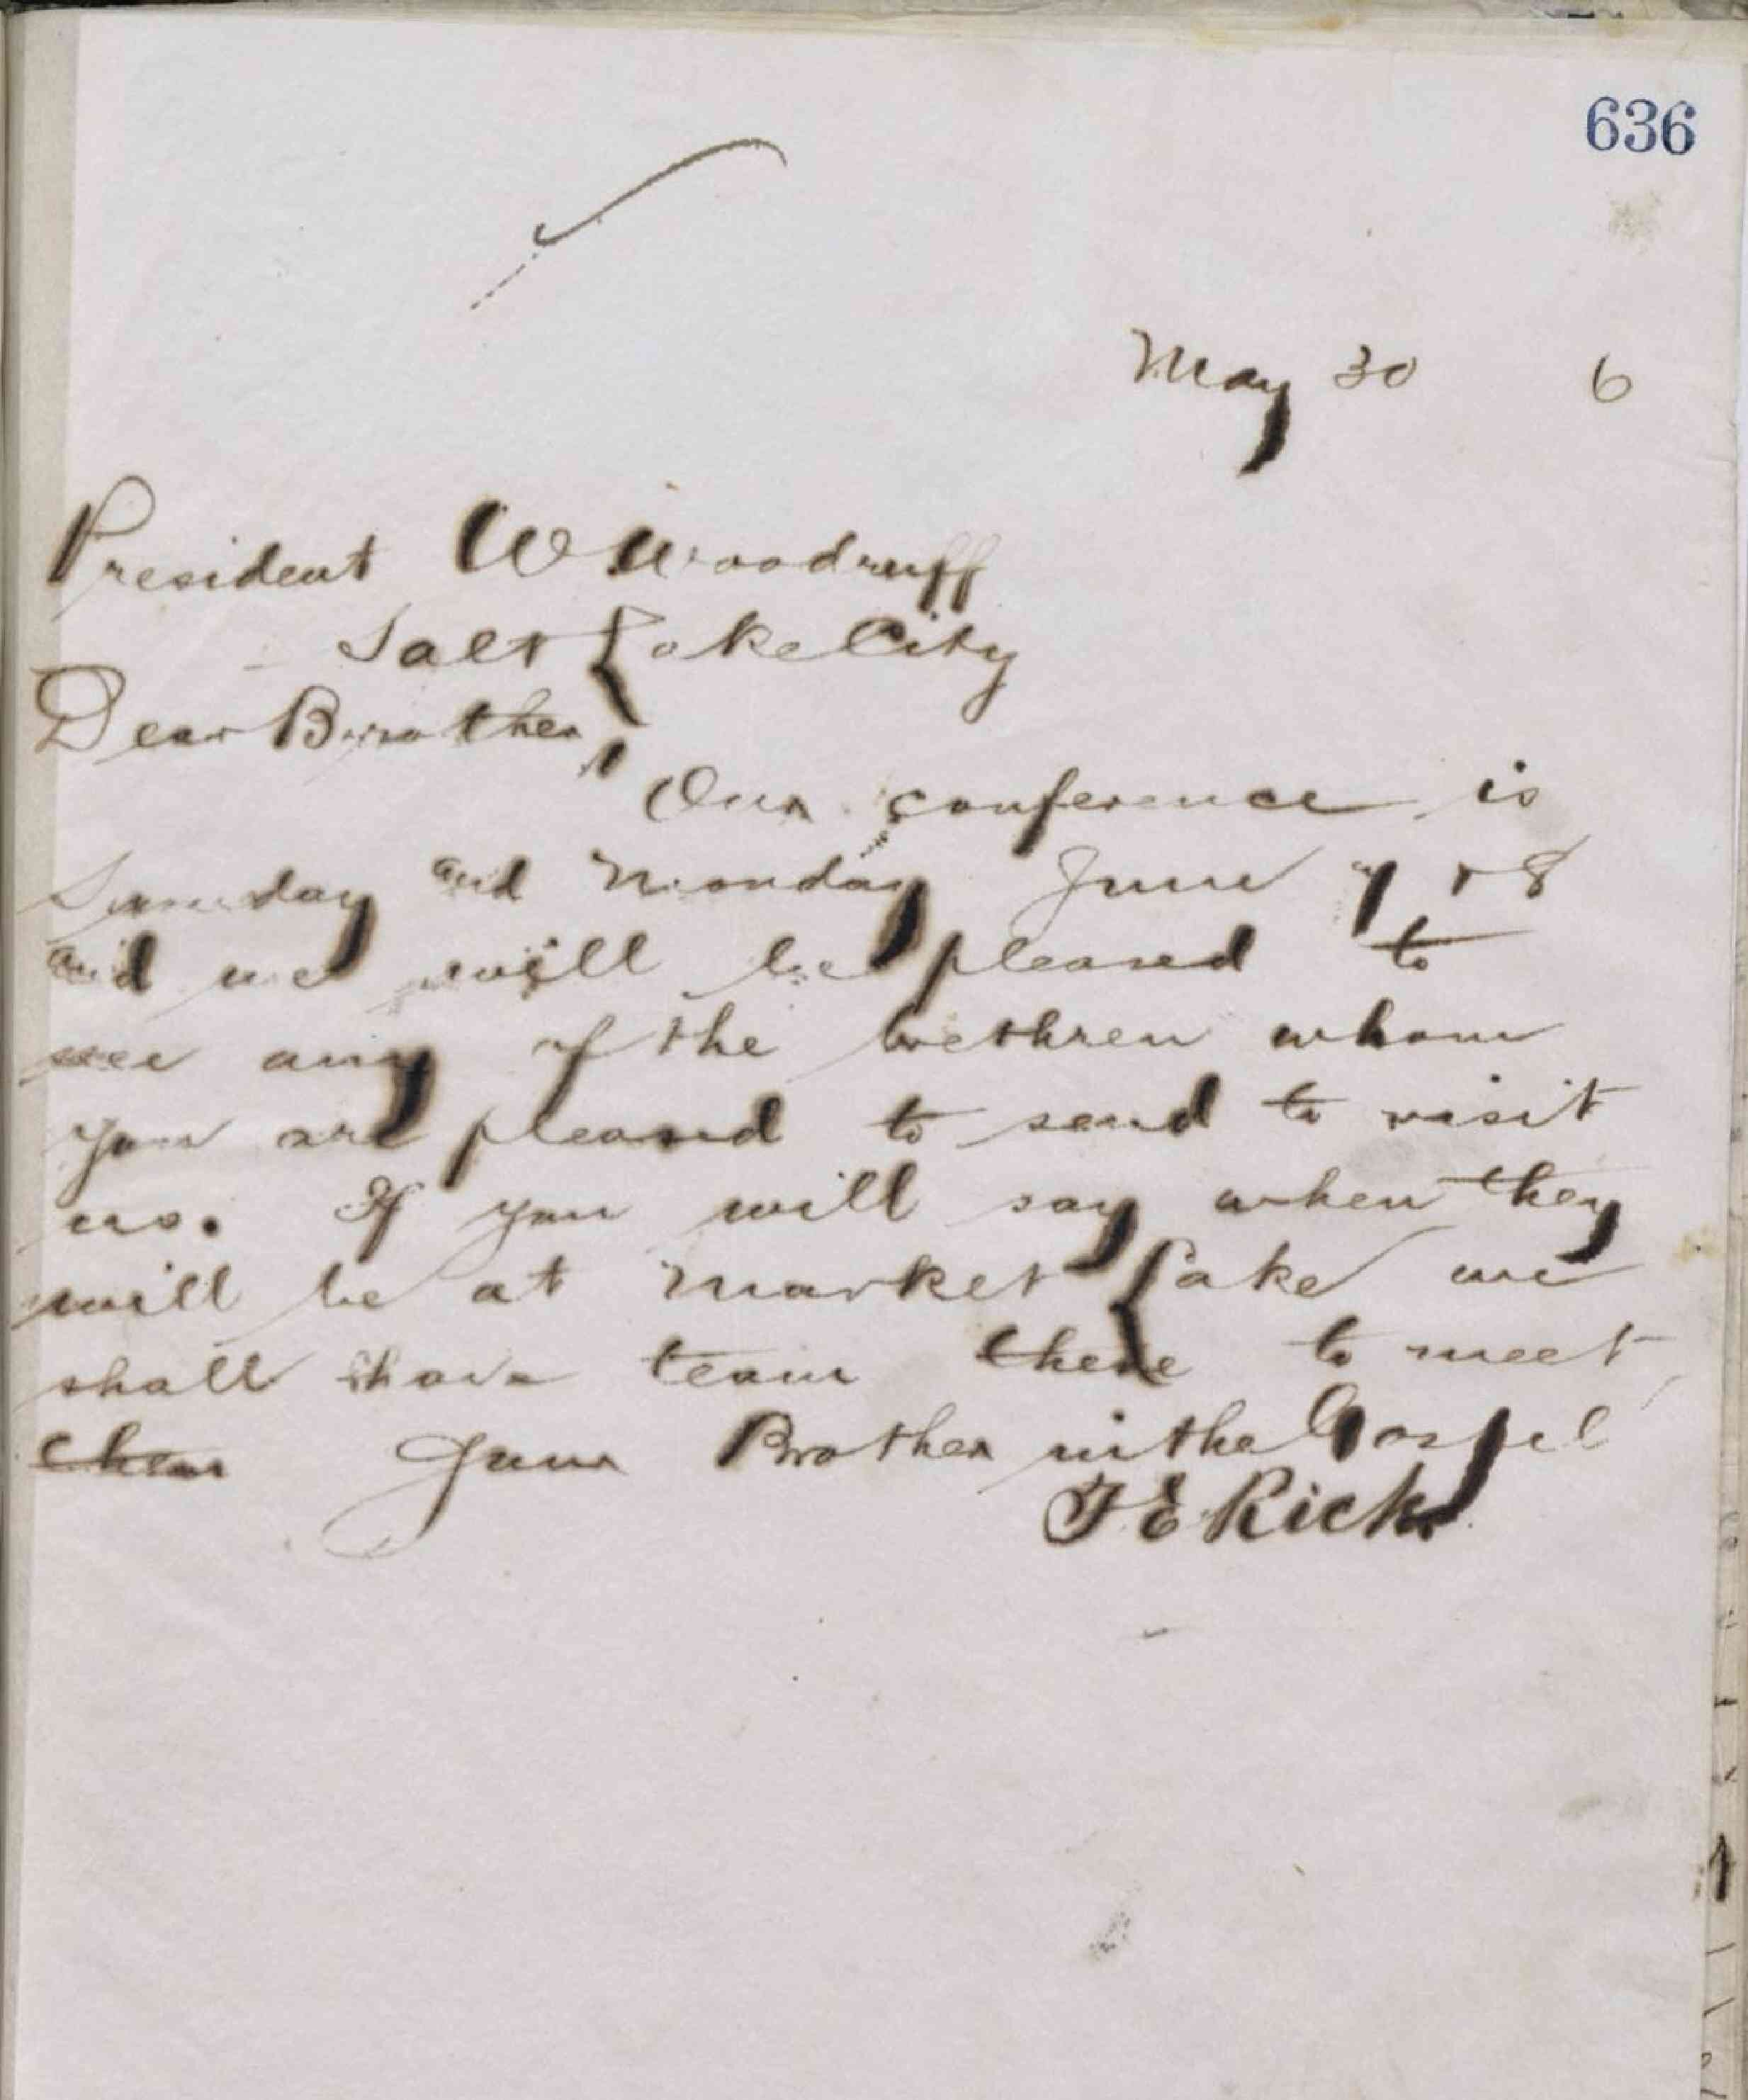 636
May 30 6
President W Woodruff
Salt Lake City
Dear Brother,
Our conference is
Sunday and Monday June 7 & 8
and we will be pleased to
see any of the brethren whom
you are pleased to send to visit
us. If you will say when they
will be at Market Lake we
shall have team there to meet
them Your Brother in the Gospel
T E Ricks